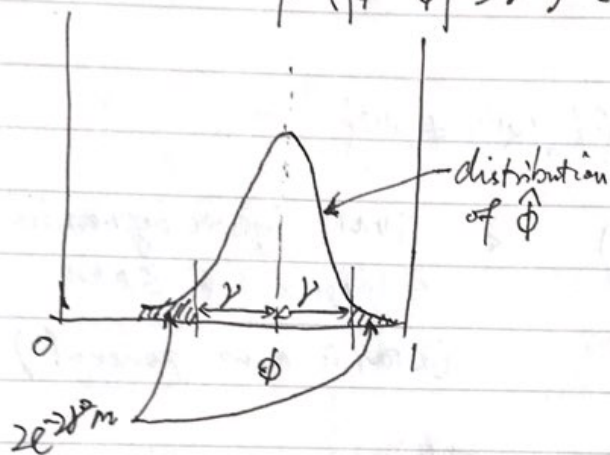 distribution
of φ̂
γ γ
0 φ 1
2e^{-2γ²m}